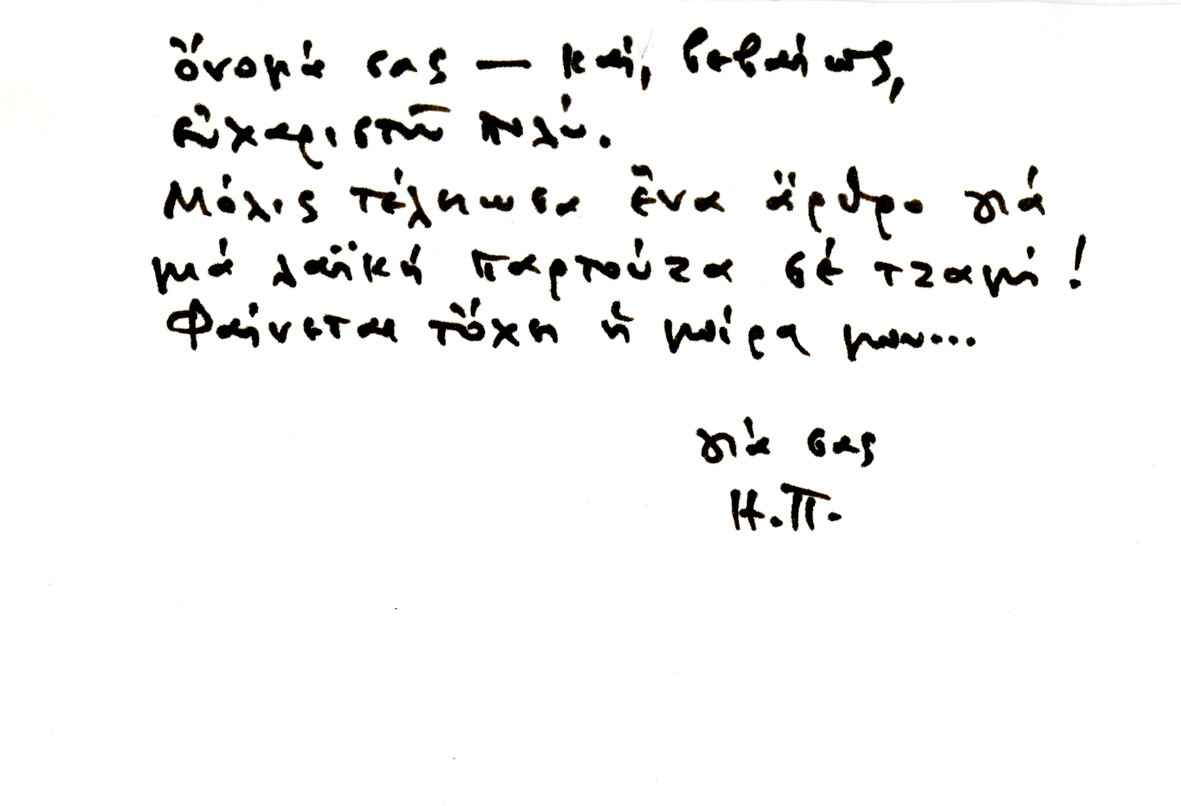 ὄνομά σας — καί, βεβαίως,
εὐχαριστῶ πολύ.
Μόλις τέλειωσα ἕνα ἄρθρο γιά
μιά λαϊκή παρτούζα σέ τζαμί!
Φαίνεται τὄχει ἡ μοίρα μου...
γιά σας
Η.Π.